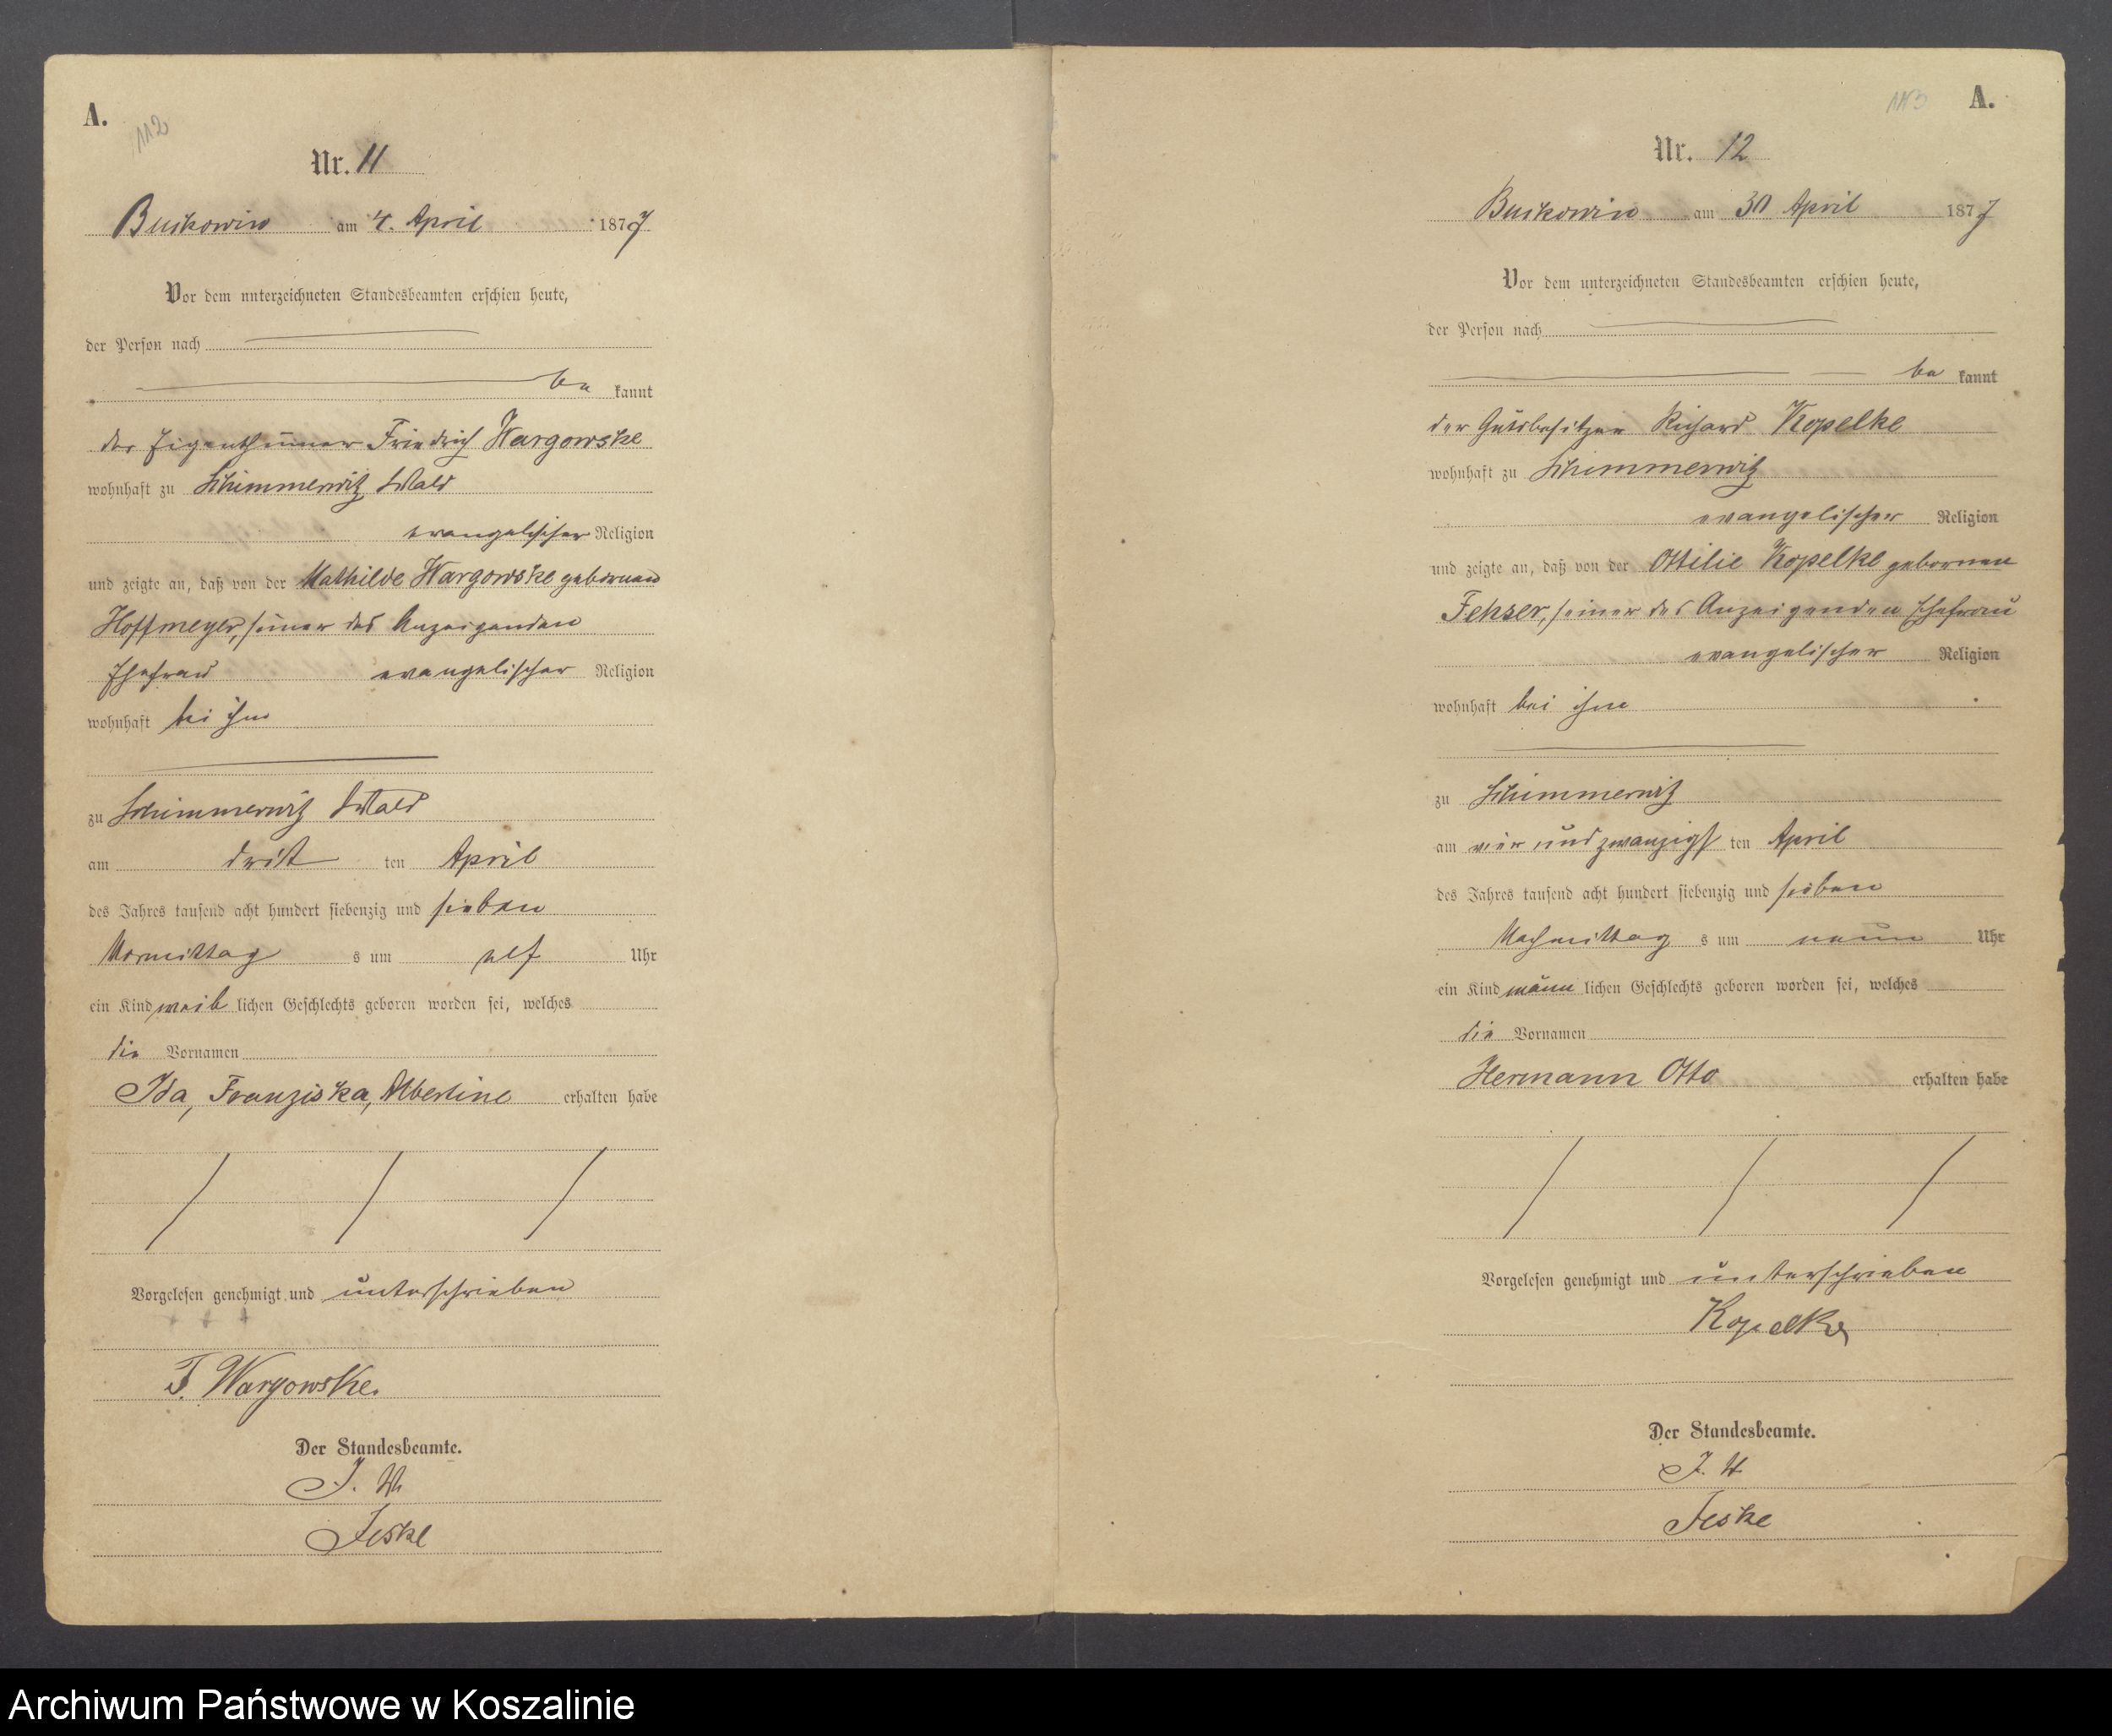 A.
112
Nr. 11
Buckowin am 4. April 1877
Vor dem unterzeichneten Standesbeamten erschien heute,
der Person nach
be kannt
der Eigenthümer Friedrich Wargowske
wohnhaft zu Schimmerwitz Wald
evangelischer Religion
und zeigte an, daß von der Mathilde Wargowske gebornen
Hoffmeyer, seiner des Anzeigenden
Ehefrau evangelischer Religion
wohnhaft bei ihm
zu Schimmerwitz Wald
am dritt ten April
des Jahres tausend acht hundert siebenzig und sieben
Vormittag s um elf Uhr
ein Kind weib lichen Geschlechts geboren worden sei, welches
die Vornamen
Ida, Franziska, Albertine erhalten habe
Vorgelesen genehmigt und unterschrieben
F. Wargowske.
Der Standesbeamte.
J. V.
Jeske
A.
113
Nr. 12
Buckowin am 30 April 1877
Vor dem unterzeichneten Standesbeamten erschien heute,
der Person nach
be kannt
der Gutsbesitzer Richard Kopelke
wohnhaft zu Schimmerwitz
evangelischer Religion
und zeigte an, daß von der Ottilie Kopelke gebornen
Fehser, seiner des Anzeigenden Ehefrau
evangelischer Religion
wohnhaft bei ihm
zu Schimmerwitz
am vier und zwanzigs ten April
des Jahres tausend acht hundert siebenzig und sieben
Nachmittag s um neun Uhr
ein Kind männ lichen Geschlechts geboren worden sei, welches
die Vornamen
Hermann Otto erhalten habe
Vorgelesen genehmigt und unterschrieben
Kopelke
Der Standesbeamte.
J. V.
Jeske
Archiwum Państwowe w Koszalinie